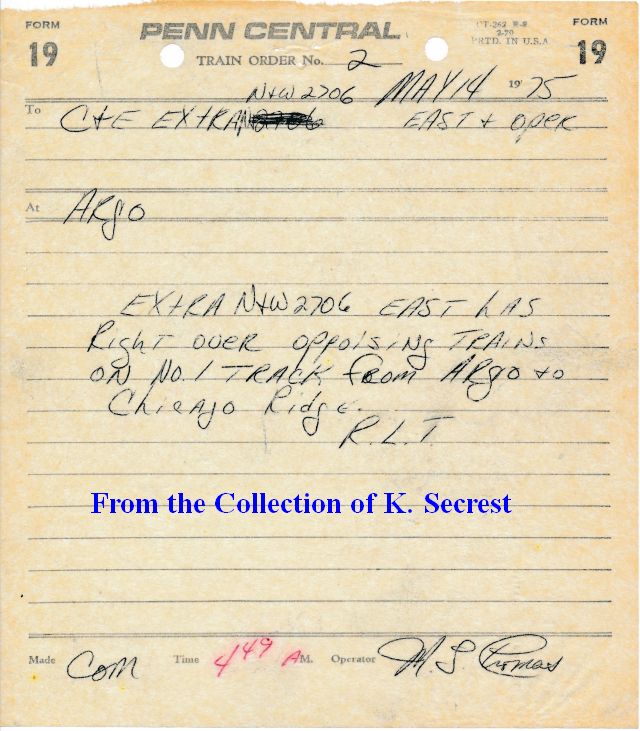 FORM 19
PENN CENTRAL
CT-262 R-2
2-70
PRTD. IN U.S.A
FORM 19
TRAIN ORDER No. 2
N+W 2706 MAY 14 1975
To C+E EXTRA EAST + OPER
At ARgO
EXTRA N+W 2706 EAST hAS
Right over oppoising TRAINS
ON No. 1 TRACK from ARgO to
Chicago Ridge.
R.L.T
From the Collection of K. Secrest
Made Com Time 449 AM. Operator M. L. Thomas